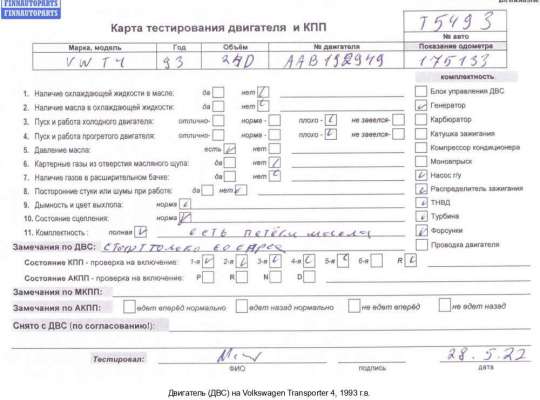 FINNAUTOPARTS
FINNAUTOPARTS
Карта тестирования двигателя и КПП
T5493
№ авто
Марка, модель Год Объём № двигателя Показание одометра
VW T4 93 2,4D AAB192949 175133
комплектность
1. Наличие охлаждающей жидкости в масле: да нет
2. Наличие масла в охлаждающей жидкости: да нет
3. Пуск и работа холодного двигателя: отлично- норма - плохо - не завелся-
4. Пуск и работа прогретого двигателя: отлично- норма - плохо - не завелся-
5. Давление масла: есть нет
6. Картерные газы из отверстия масляного щупа: да нет
7. Наличие газов в расширительном бачке: да нет
8. Посторонние стуки или шумы при работе: да нет
9. Дымность и цвет выхлопа: норма
10. Состояние сцепления: норма
11. Комплектность: полная есть потёки масла
Блок управления ДВС
Генератор
Карбюратор
Катушка зажигания
Компрессор кондиционера
Моновпрыск
Насос г/у
Распределитель зажигания
ТНВД
Турбина
Форсунки
Проводка двигателя
Замечания по ДВС:
Состояние КПП - проверка на включение: 1-я 2-я 3-я 4-я 5-я 6-я R
Состояние АКПП - проверка на включение: P R N D
Замечания по МКПП:
Замечания по АКПП: едет вперёд нормально едет назад нормально не едет вперёд не едет назад
Снято с ДВС (по согласованию!):
Тестировал: 28.5.22
ФИО подпись дата
Двигатель (ДВС) на Volkswagen Transporter 4, 1993 г.в.